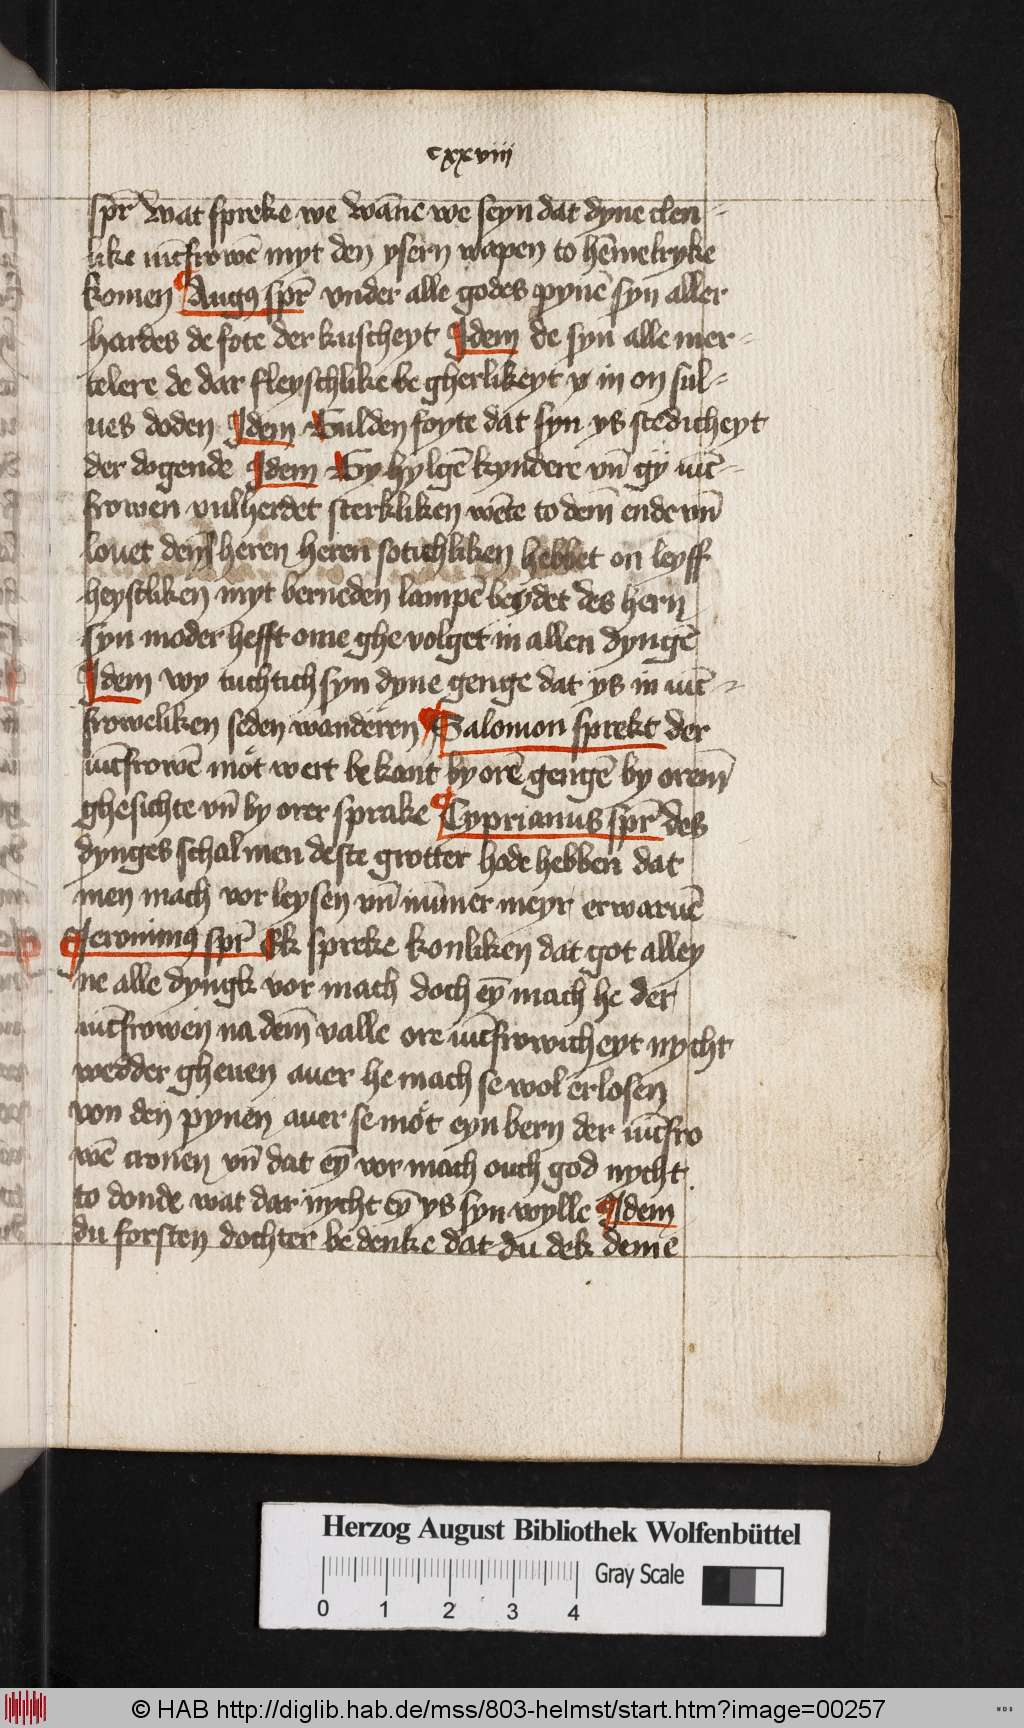 cxxviij
spr̄ wat spreke we wān̄e we seyn dat dyne clen-
like iūcfrowē myt den ysern wapen to hēmelryke
komen Augꝰ spr̄ vnder alle godes pynē syn aller
hardes de fote der kuscheyt Idem de syn alle mer-
telere de dar fleyschlike begherlikeyt y in on sul-
ues doden Idem Gulden foyte dat syn ys stedicheyt
der dogende Idem Gy hylgē kyndere vn̄ gy iūc-
frowen vulherdet sterkliken wēte to dem̄ ende vn̄
louet dem heren heren sotichliken hebbet on leyff
heystliken myt berneden lampē beydet des hern
syn moder hefft ome ghevolget in allen dyngē
Idem wy tuchtich syn dyne genge dat ys in iūc-
froweliken seden wanderen Salomon sprekt der
iūcfrowē mot wert bekant by orē gengē by orem̄
ghesichte vn̄ by orer sprake Cyprianus spr̄ des
dynges schal men deste grotter hode hebben dat
men mach vorleysen vn̄ nūmer meyr erwaruē
Ieronimꝰ spr̄ Ek spreke konliken dat got alley
ne alle dyngk vor mach doch eȳ mach he der
iūcfrowen na dem̄ valle ore iūcfrowicheyt nycht
wedder gheuen auer he mach se wol erlosen
von den pynen auer se mot eyn bern der iūcfro
wē cronen vn̄ dat eȳ vor mach ouch god nycht
to donde wat dar nycht eȳ ys syn wylle Idem
du forsten dochter bedenke dat du dek deme
Herzog August Bibliothek Wolfenbüttel
Gray Scale
0 1 2 3 4
© HAB http://diglib.hab.de/mss/803-helmst/start.htm?image=00257